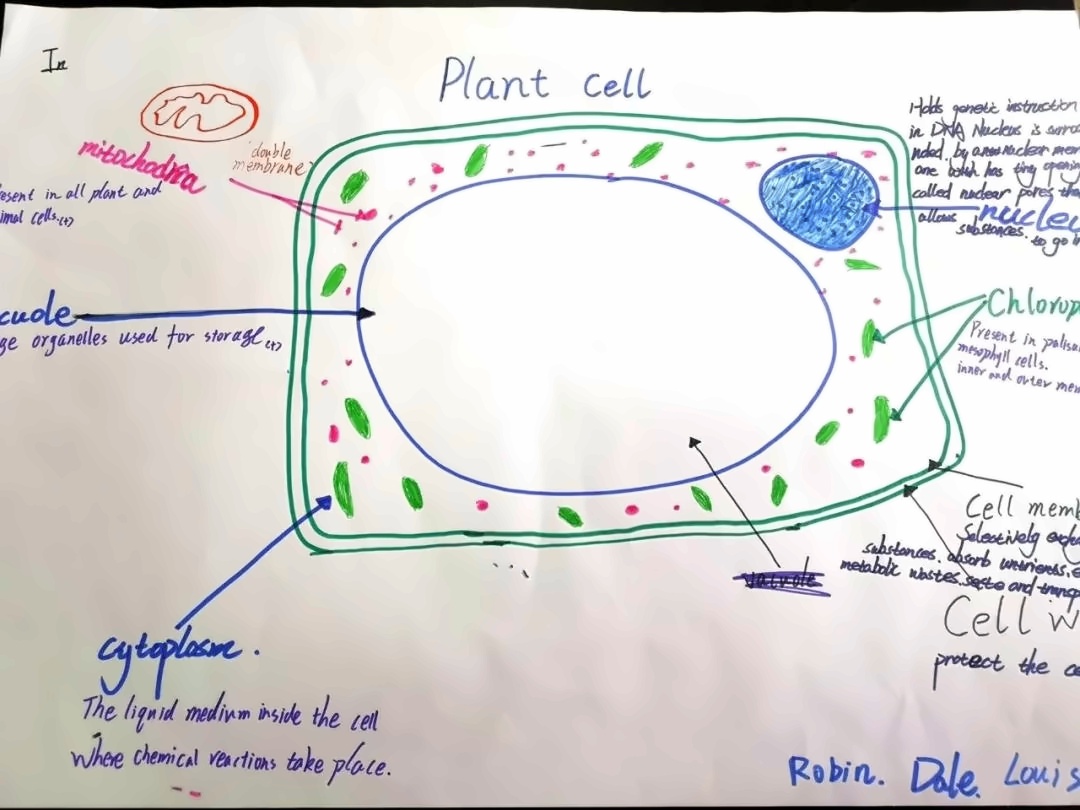 In
Plant Cell
mitochodria
double
membrane
esent in all plant and
imal cells.(+)
cuole
ge organelles used for storage.(+)
Holds genetic instruction
in DNA Nucleus is surro
nded by nuclear mem
one batch has tiny opening
called nuclear pores tha
allows
substances.
to go in
nucleu
Chlorop
Present in palisa
mesophyll cells.
inner and outer mem
Cell memb
Selectively
substances. absorb
metabolic wastes. and transp
vacuole
Cell w
protect the ce
cytoplasm.
The liquid medium inside the cell
Where chemical reactions take place.
Robin. Dale. Louis